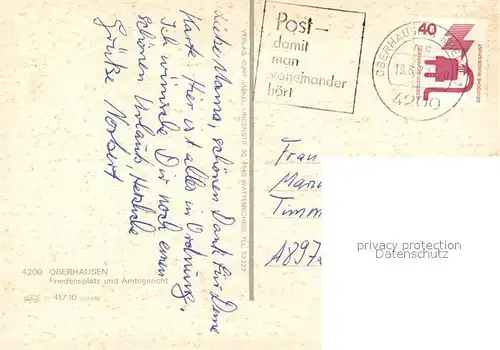 Liebe Mama, schönen Dank für Deine
Karte. Hier ist alles in Ordnung.
Ich wünsche Dir noch einen
schönen Urlaub. Herzliche
Grüße Norbert
4200 OBERHAUSEN
Friedensplatz und Amtsgericht
41710
VERLAG KURT 30, 4640 WATTENSCHEID, TEL. 53223
Post-
damit
man
voneinander
hört
OBERHAUSEN
mc
4200
40
DEUTSCHE BUNDESPOST
Frau
Timm
A897
privacy protection
Datenschutz